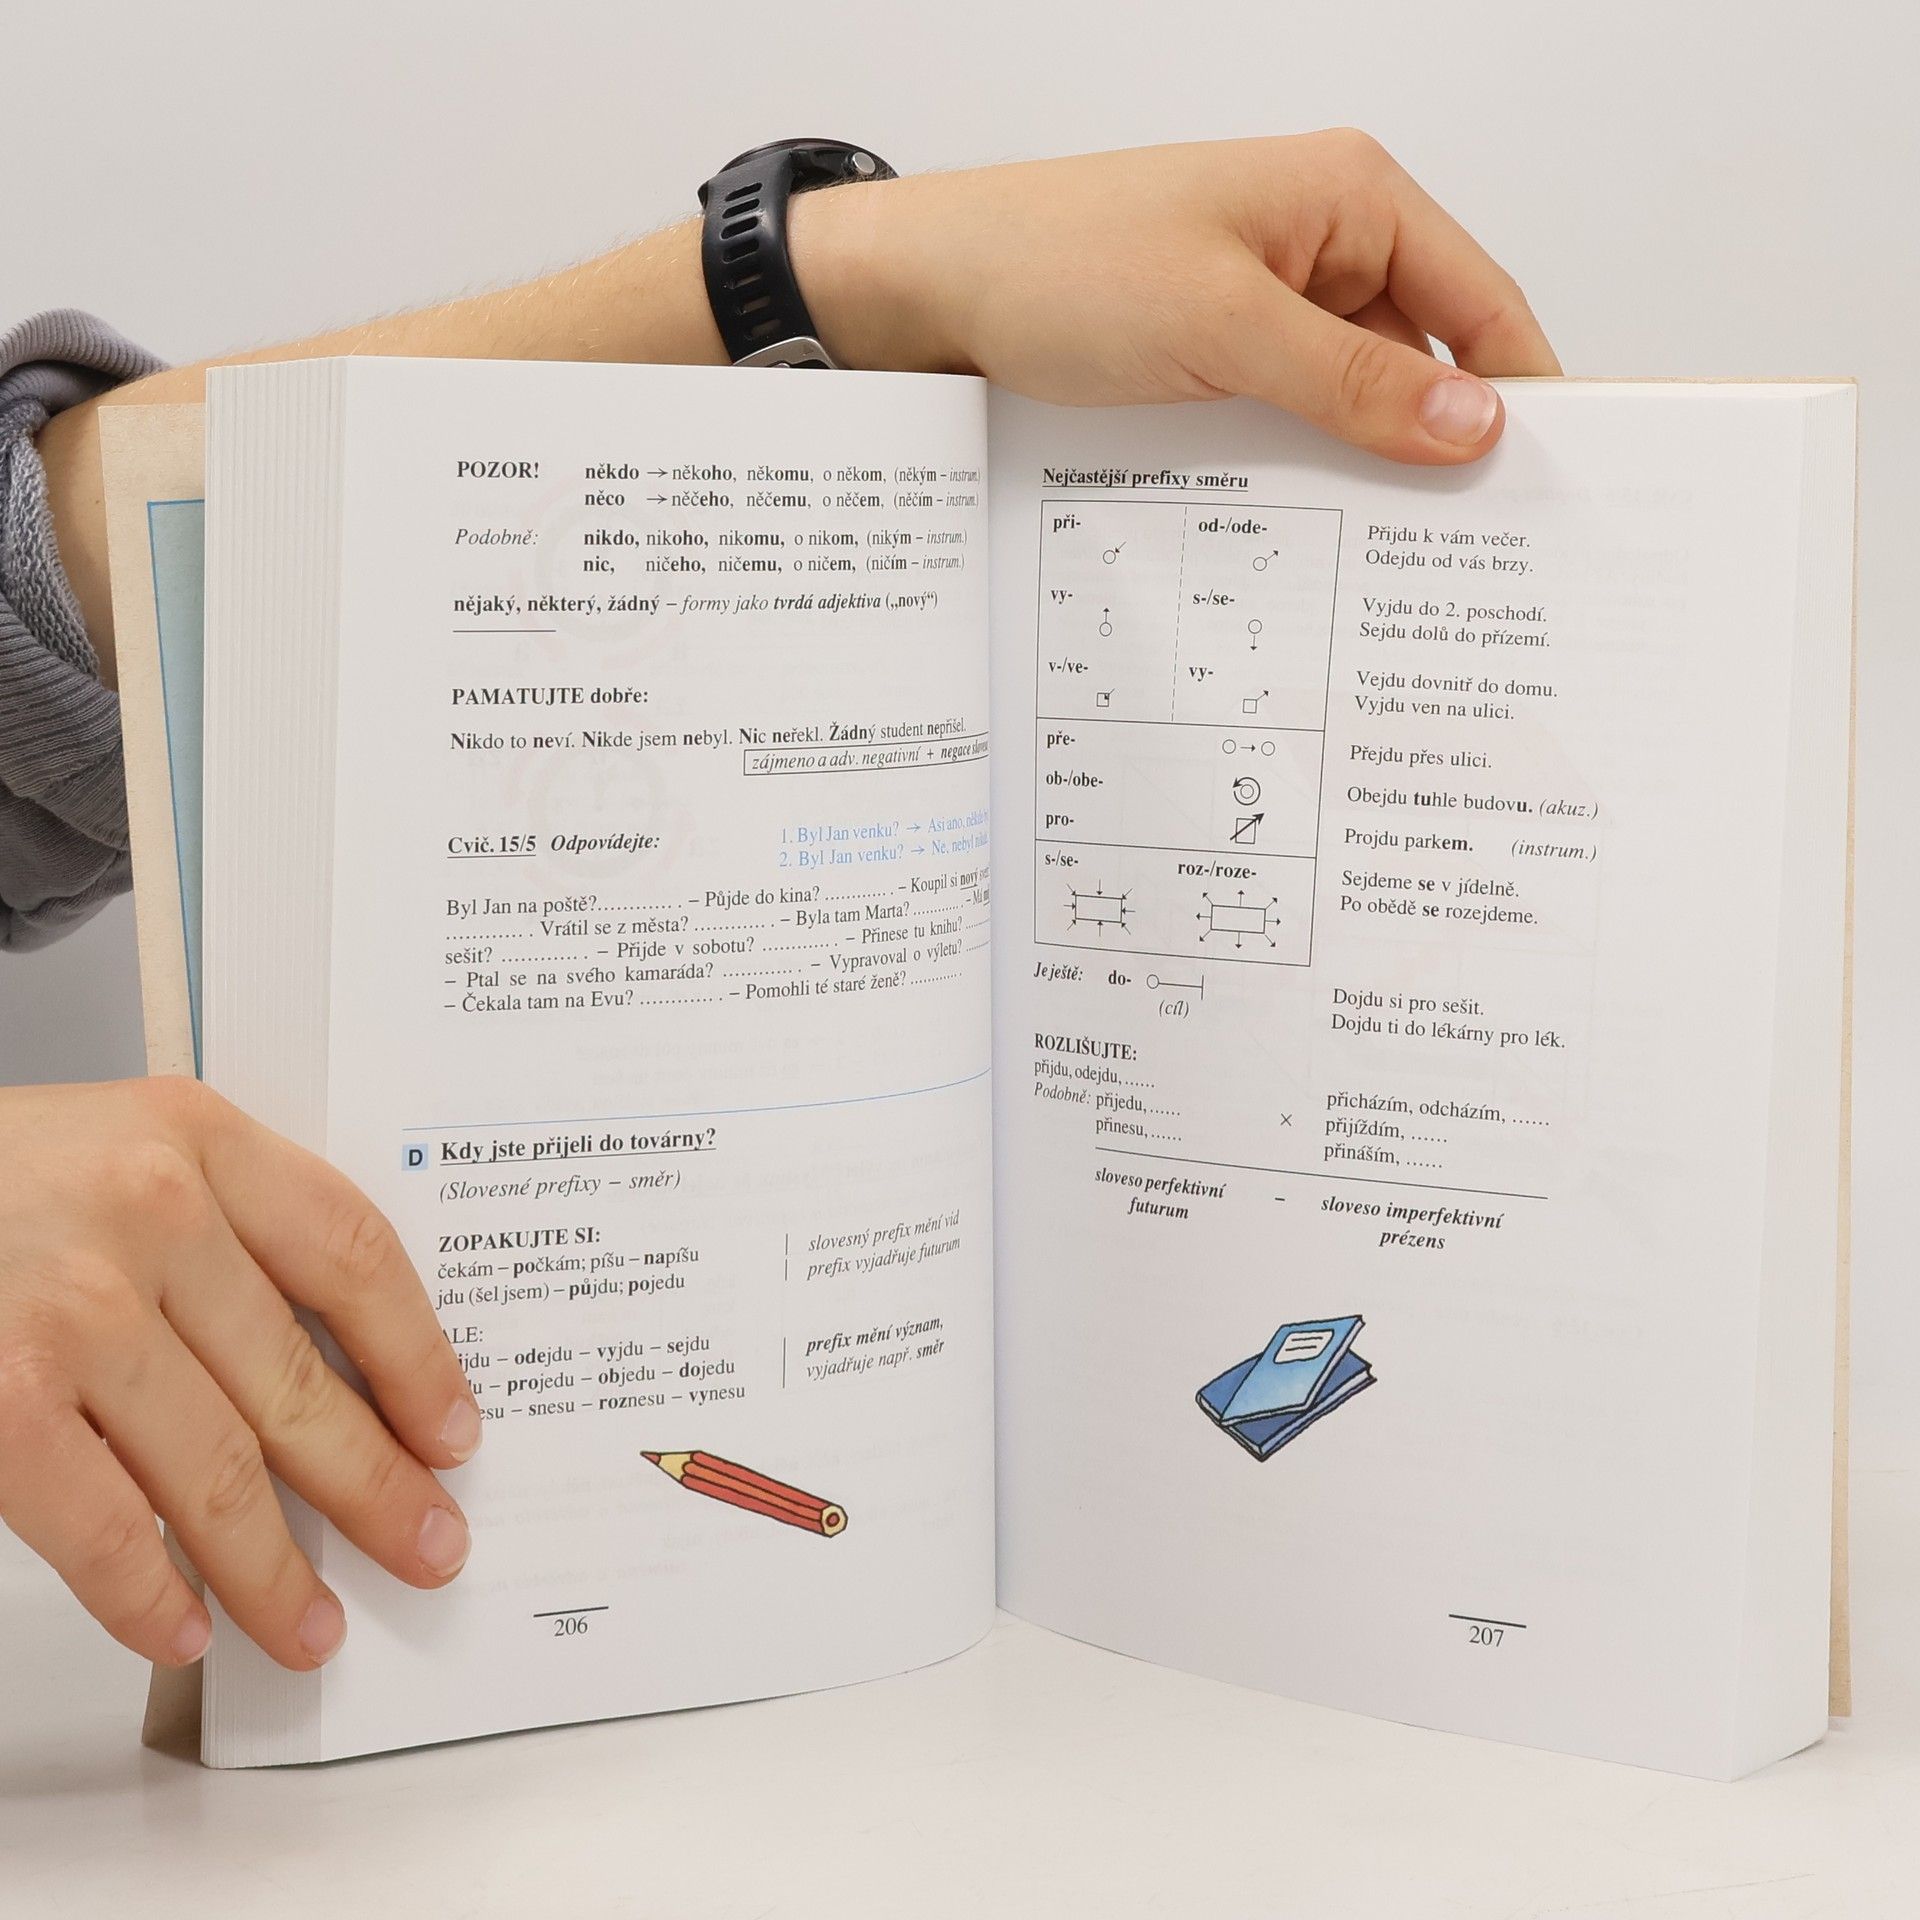 POZOR! někdo → někoho, někomu, o někom, (někým – instrum.)
něco → něčeho, něčemu, o něčem, (něčím – instrum.)
Podobně: nikdo, nikoho, nikomu, o nikom, (nikým – instrum.)
nic, ničeho, ničemu, o ničem, (ničím – instrum.)
nějaký, některý, žádný – formy jako tvrdá adjektiva („nový“)
PAMATUJTE dobře:
Nikdo to neví. Nikde jsem nebyl. Nic neřekl. Žádný student nepřišel.
zájmeno a adv. negativní + negace
Cvič. 15/5 Odpovídejte:
1. Byl Jan venku? → Asi ano,
2. Byl Jan venku? → Ne, nebyl
Byl Jan na poště?............ – Půjde do kina? ............ – Koupil si nový
............ . Vrátil se z města? ............ – Byla tam Marta? ............
sešit? ............ – Přijde v sobotu? ............ – Přinese tu knihu? ......
– Ptal se na svého kamaráda? ............ – Vypravoval o výletu? ......
– Čekala tam na Evu? ............ – Pomohli té staré ženě? ............
D Kdy jste přijeli do továrny?
(Slovesné prefixy – směr)
ZOPAKUJTE SI:
čekám – počkám; píšu – napíšu | slovesný prefix mění vid
jdu (šel jsem) – půjdu; pojedu | prefix vyjadřuje futurum
– odejdu – vyjdu – sejdu | prefix mění význam,
– projedu – objedu – dojedu | vyjadřuje např. směr
– snesu – roznesu – vynesu
206
Nejčastější prefixy směru
při- od-/ode- Přijdu k vám večer.
Odejdu od vás brzy.
vy- s-/se- Vyjdu do 2. poschodí.
Sejdu dolů do přízemí.
v-/ve- vy- Vejdu dovnitř do domu.
Vyjdu ven na ulici.
pře- Přejdu přes ulici.
ob-/obe- Obejdu tuhle budovu. (akuz.)
pro- Projdu parkem. (instrum.)
s-/se- roz-/roze- Sejdeme se v jídelně.
Po obědě se rozejdeme.
Je ještě: do- (cíl) Dojdu si pro sešit.
Dojdu ti do lékárny pro lék.
ROZLIŠUJTE:
přijdu, odejdu, ...... přicházím, odcházím, ......
Podobně: přijedu, ...... × přijíždím, ......
přinesu, ...... přináším, ......
sloveso perfektivní – sloveso imperfektivní
futurum prézens
207